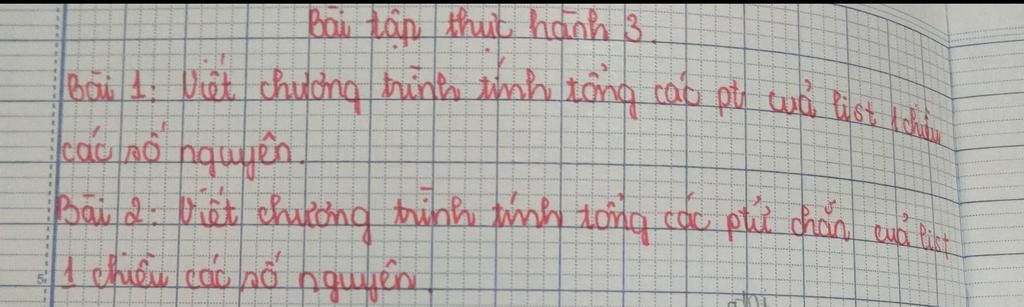 Bài tập thực hành 3.
Bài 1: Viết chương trình tính tổng các pt của list 1 chiều
các số nguyên.
Bài 2: Viết chương trình tính tổng các ptử chẵn của list
1 chiều các số nguyên.